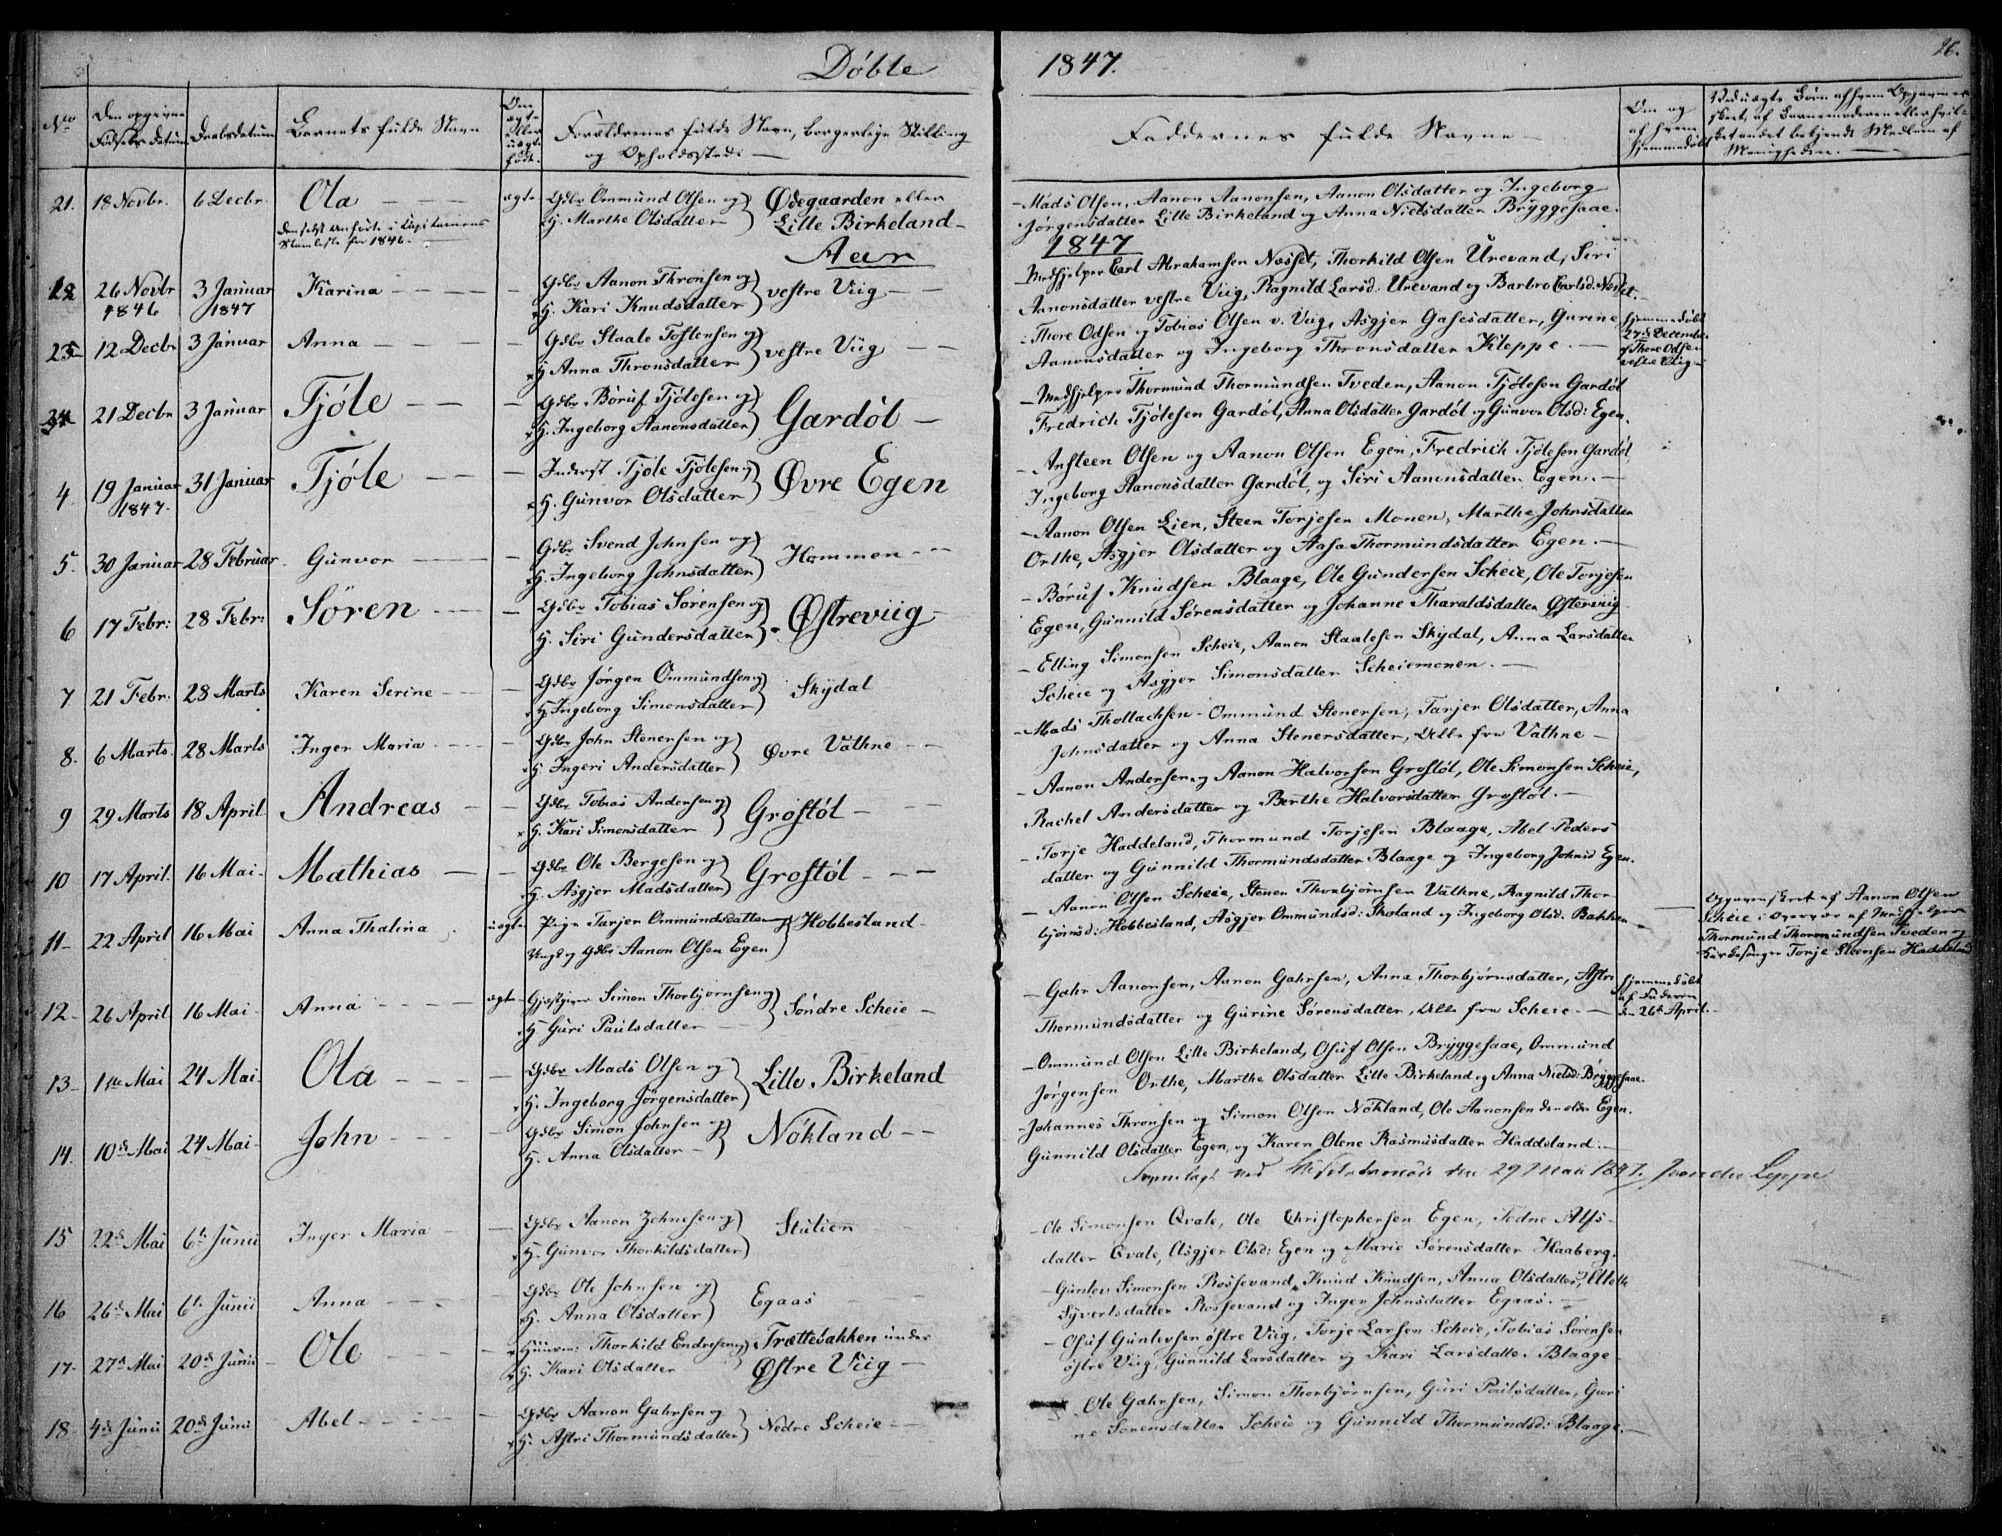 Døbte
1847.
26.
No
Den opgivne Fødselsdatum
Daabsdatum
Barnets fulde Navn
Om ægte eller uægte født.
Forældrenes fulde Navn, borgerlige Stilling og Opholdssted
Faddernes fulde Navne
Om og af hvem hjemmedøbt
21. 18 Novbr. 6 Decbr. Ola ægte
Gdbr Ommund Olsen og
H. Marthe Olsdatter
Ødegaarden eller
Lille Birkeland
Mads Olsen, Aanon Aanonsen, Aanon Olsdatter og Ingeborg
Jørgensdatter Lille Birkeland og Anna Nielsdatter Bryggesaae.
Aar
1847
26 Novbr 1846 3 Januar 1847 Karina
Gdbr Aanon Thronsen og
H. Kari Knudsdatter
vestre Viig
Medhjelper Carl Abrahamsen Nosset, Thorkild Olsen Urevand, Siri
Aanonsdatter vestre Viig, Ragnild Larsd. Urevand og Barbro Carlsd. Nosset.
12 Decbr 3 Januar Anna
Gdbr Staale Tostensen og
H Anna Thronsdatter
vestre Viig
Thore Odsen og Tobias Olsen v. Viig, Asgjer Gahsesdatter, Gurine
Aanonsdatter og Ingeborg Thronsdatter Kleppe.
hjemmedøbt 27de December af Thore Odsen vestre Viig
21 Decbr 3 Januar Tjøle
Gdbr Børuf Tjølesen og
H. Ingeborg Aanonsdatter
Gardøl
Medhjelper Thormund Thormundsen Tveden, Aanon Tjølesen Gardøl
Fredrich Tjølesen Gardøl, Anna Olsdatter Gardøl og Gunvor Olsd: Egen.
4. 19 Januar 1847. 31 Januar Tjøle
Inderst Tjøle Tjølesen og
H. Gunvor Olsdatter
Øvre Egen
Ansteen Olsen og Aanon Olsen Egen, Fredrich Tjølesen Gardøl,
Ingeborg Aanonsdatter Gardøl, og Siri Aanonsdatter Egen.
5. 30 Januar 28 Februar Gunvor
Gdbr Svend Johnsen og
H. Ingeborg Johnsdatter
Hommen
Aanon Olsen Lien, Steen Torjesen Monen, Marthe Johnsdatter
Orthe, Asgjer Olsdatter og Aasa Thormundsdatter Egen.
6 17 Febr: 28 Febr: Sören
Gdbr Tobias Sørensen og
H. Siri Gundersdatter
Østreviig
Børuf Knudsen Blaage, Ole Gundersen Scheie, Ole Torjesen
Egen, Gunnild Sørensdatter og Johanne Tharaldsdatter Østerviig
7 21 Febr. 28 Marts Karen Serine
Gdbr Jørgen Ommundsen og
H Ingeborg Simonsdatter
Skydal
Elling Simonsen Scheie, Aanon Staalesen Skydal, Anna Larsdatter
Scheie og Asgjer Simonsdatter Scheiemonen.
8. 6 Marts. 28 Marts Inger Maria
Gdbr John Stenersen og
H Ingeri Andersdatter
Øvre Vathne
Mads Thollachsen Ommund Stenersen, Tarjer Olsdatter, Anna
Johnsdatter og Anna Stenersdatter, Alle fra Vathne
9 29 Marts 18 April Andreas
Gdbr Tobias Andersen og
H. Kari Simonsdatter
Grostøl
Aanon Andersen og Aanon Halvorsen Grostøl, Ole Simonsen Scheie,
Rachel Andersdatter og Berthe Halvorsdatter Grostøl.
10 17 April. 16 Mai Mathias
Gdbr Ole Bergesen og
H. Asgjer Madsdatter
Grostøl
Torje Haddeland, Thormund Torjesen Blaage, Abel Peders
datter og Gunnild Thormundsdatter Blaage og Ingeborg Johnsd Egen.
11 22 April 16 Mai Anna Thalina uægte
Pige Tarjer Ommundsdatter
Ungk og Gdbr Aanon Olsen Egen
Hobbesland
Aanon Olsen Scheie, Stener Thorbjørnsen Vathne, Ragnild Thor
bjørnsd: Hobbesland, Asgjer Ommundsd: Skoland og Ingeborg Olsd: Bakken
Opgaven skeet af Aanon Olsen
Scheie i Overvær af Medhjelper
Thormund Thormundsen Tveden og
Kirkesanger Torje Steensen Haddeland
12 26 April 16 Mai Anna ægte
Gjestgiver Simon Thorbjørnsen og
H Guri Paulsdatter
Søndre Scheie
Gahr Aanonsen, Aanon Gahrsen, Anna Thorbjørnsdatter, Astri
Thormundsdatter og Gurine Sørensdatter, Alle fra Scheie.
hjemmedøbt af Faderen d. 26de April.
13 1ste Mai 24 Mai Ola
Gdbr Mads Olsen og
H. Ingeborg Jørgensdatter
Lille Birkeland
Ommund Olsen Lille Birkeland, Osuf Olsen Bryggesaae, Ommund
Jørgensen Orthe, Marthe Olsdatter Lille Birkeland og Anna Nielsd: Bryggesaae.
14. 10de Mai 24 Mai John
Gdbr Simon Johnsen og
H. Anna Olsdatter
Nökland
Johannes Thronsen og Simon Olsen Nökland, Ole Aanonsen den eldre Egen.
Gunnild Olsdatter Egen, og Karen Olene Rasmusdatter Haddeland.
15 22de Mai 6te Junii Inger Maria
Gdbr Aanon Johnesen og
H. Gunvor Thorkildsdatter
Stulien
Ole Simonsen Qvale, Ole Christophersen Egen, Todne Alfs-
datter Qvale, Asgjer Olsd: Egen og Marie Sørensdatter Haaberg.
16 26de Mai 6te Junii Anna
Gdbr Ole Johnsen og
H. Anna Olsdatter
Egaas
Gunlev Simonsen Rossevand, Knud Knudsen, Anna Olsdatter,
Syvertsdatter Rossevand og Inger Johnsdatter Egaas.
17 27de Mai 20de Junii Ole
Thorkild Endresen og
H. Kari Olsdatter
Trættebakken under
Østre Viig
Osuf Gunlevsen østre Viig, Torje Larsen Scheie, Tobias Sørensen
østre Viig, Gunnild Larsdatter og Kari Larsdatter Blaage
18. 4de Junii 20de Junii Abel
Gdbr Aanon Gahrsen og
H. Astri Thormundsdatter
Nedre Scheie
Ole Gahrsen, Simon Thorbjørnsen, Guri Paulsdatter, Guri
ne Sørensdatter Scheie og Gunnild Thormundsd: Blaage.